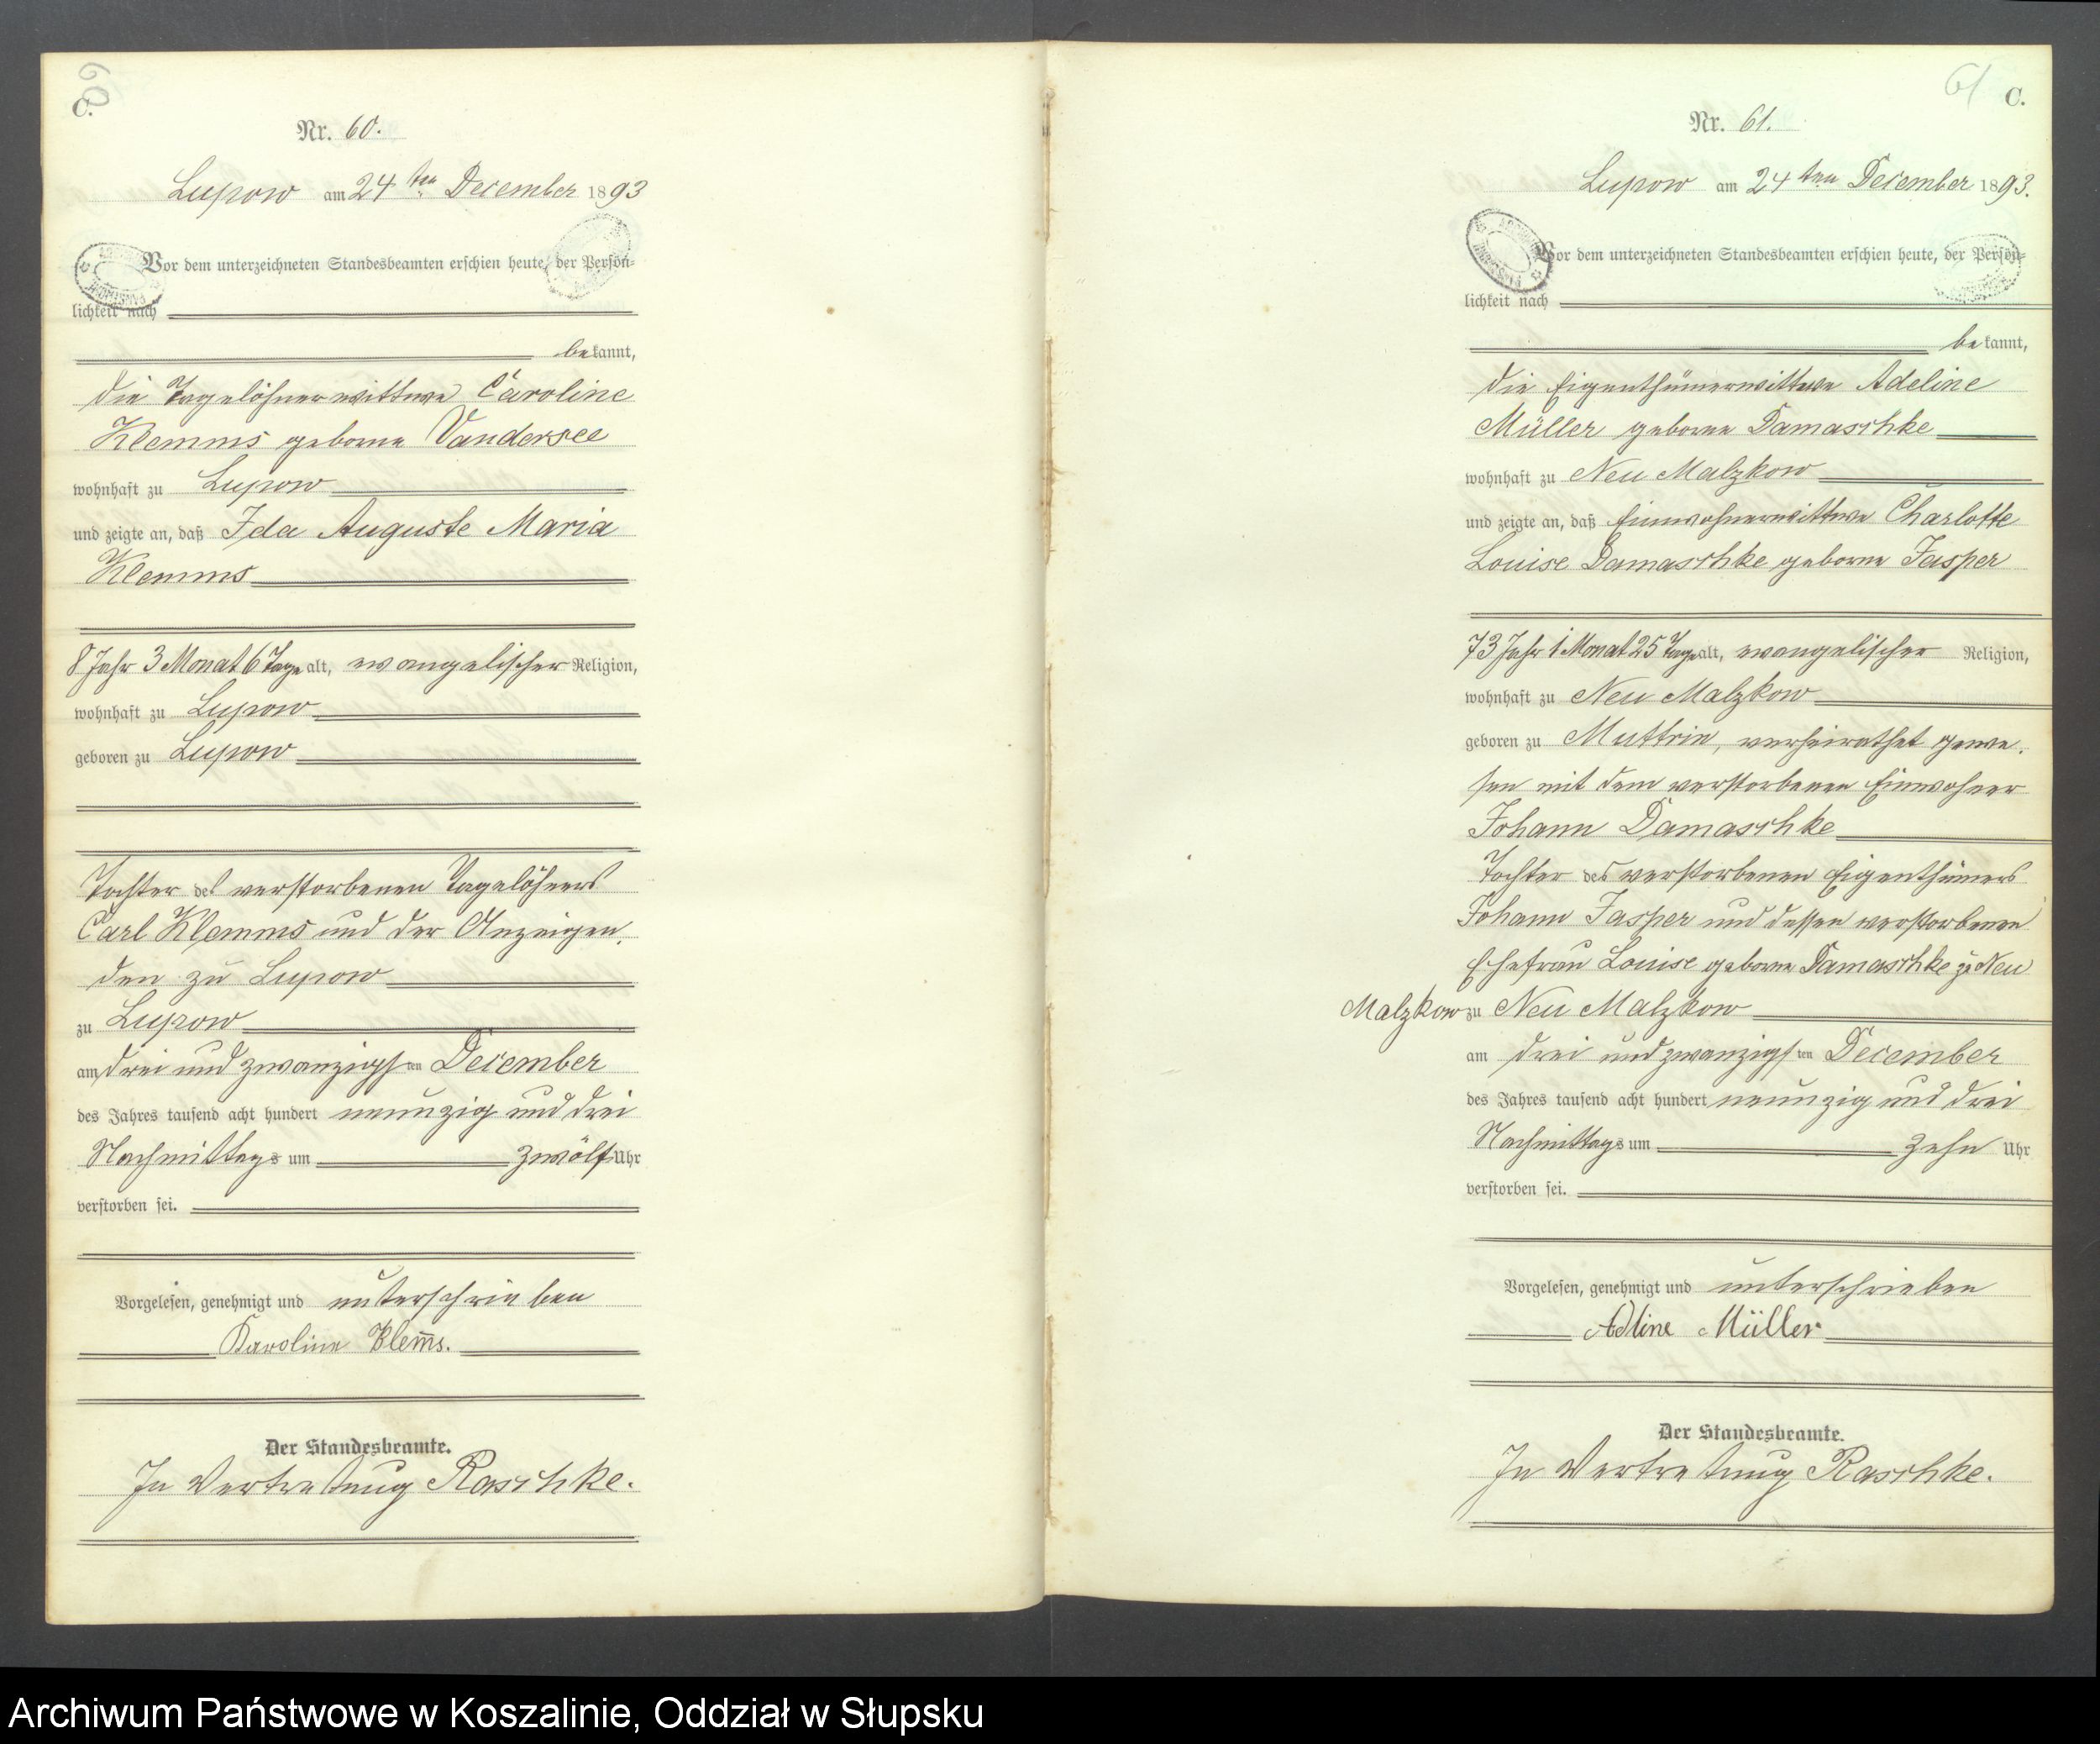 60
C.
Nr. 60.
Lupow am 24ten December 1893
Vor dem unterzeichneten Standesbeamten erschien heute, der Persön-
lichkeit nach
bekannt,
die Tagelöhnerwittwe Caroline
Klemms geborne Vandersee
wohnhaft zu Lupow
und zeigte an, daß Ida Auguste Maria
Klemms
8 Jahr 3 Monat 6 Tage alt, evangelischer Religion,
wohnhaft zu Lupow
geboren zu Lupow
Tochter des verstorbenen Tagelöhners
Carl Klemms und der Anzeigen-
den zu Lupow
zu Lupow
am drei und zwanzigsten December
des Jahres tausend acht hundert neunzig und drei
Nachmittags um zwölf Uhr
verstorben sei.
Vorgelesen, genehmigt und unterschrieben
Karoline Klem̅s.
Der Standesbeamte.
In Vertretung Raschke.
61
C.
Nr. 61.
Lupow am 24ten December 1893.
Vor dem unterzeichneten Standesbeamten erschien heute, der Persön-
lichkeit nach
bekannt,
die Eigenthümerwittwe Adeline
Müller geborne Damaschke
wohnhaft zu Neu Malzkow
und zeigte an, daß Einwohnerwittwe Charlotte
Louise Damaschke geborne Jasper
73 Jahr 1 Monat 25 Tage alt, evangelischer Religion,
wohnhaft zu Neu Malzkow
geboren zu Muttrin, verheirathet gewe-
sen mit dem verstorbenen Einwohner
Johann Damaschke
Tochter des verstorbenen Eigenthümers
Johann Jasper und dessen verstorbenen
Ehefrau Louise geborne Damaschke zu Neu
Malzkow zu Neu Malzkow
am drei und zwanzigsten December
des Jahres tausend acht hundert neunzig und drei
Nachmittags um zehn Uhr
verstorben sei.
Vorgelesen, genehmigt und unterschrieben
Adline Müller
Der Standesbeamte.
In Vertretung Raschke.
Archiwum Państwowe w Koszalinie, Oddział w Słupsku